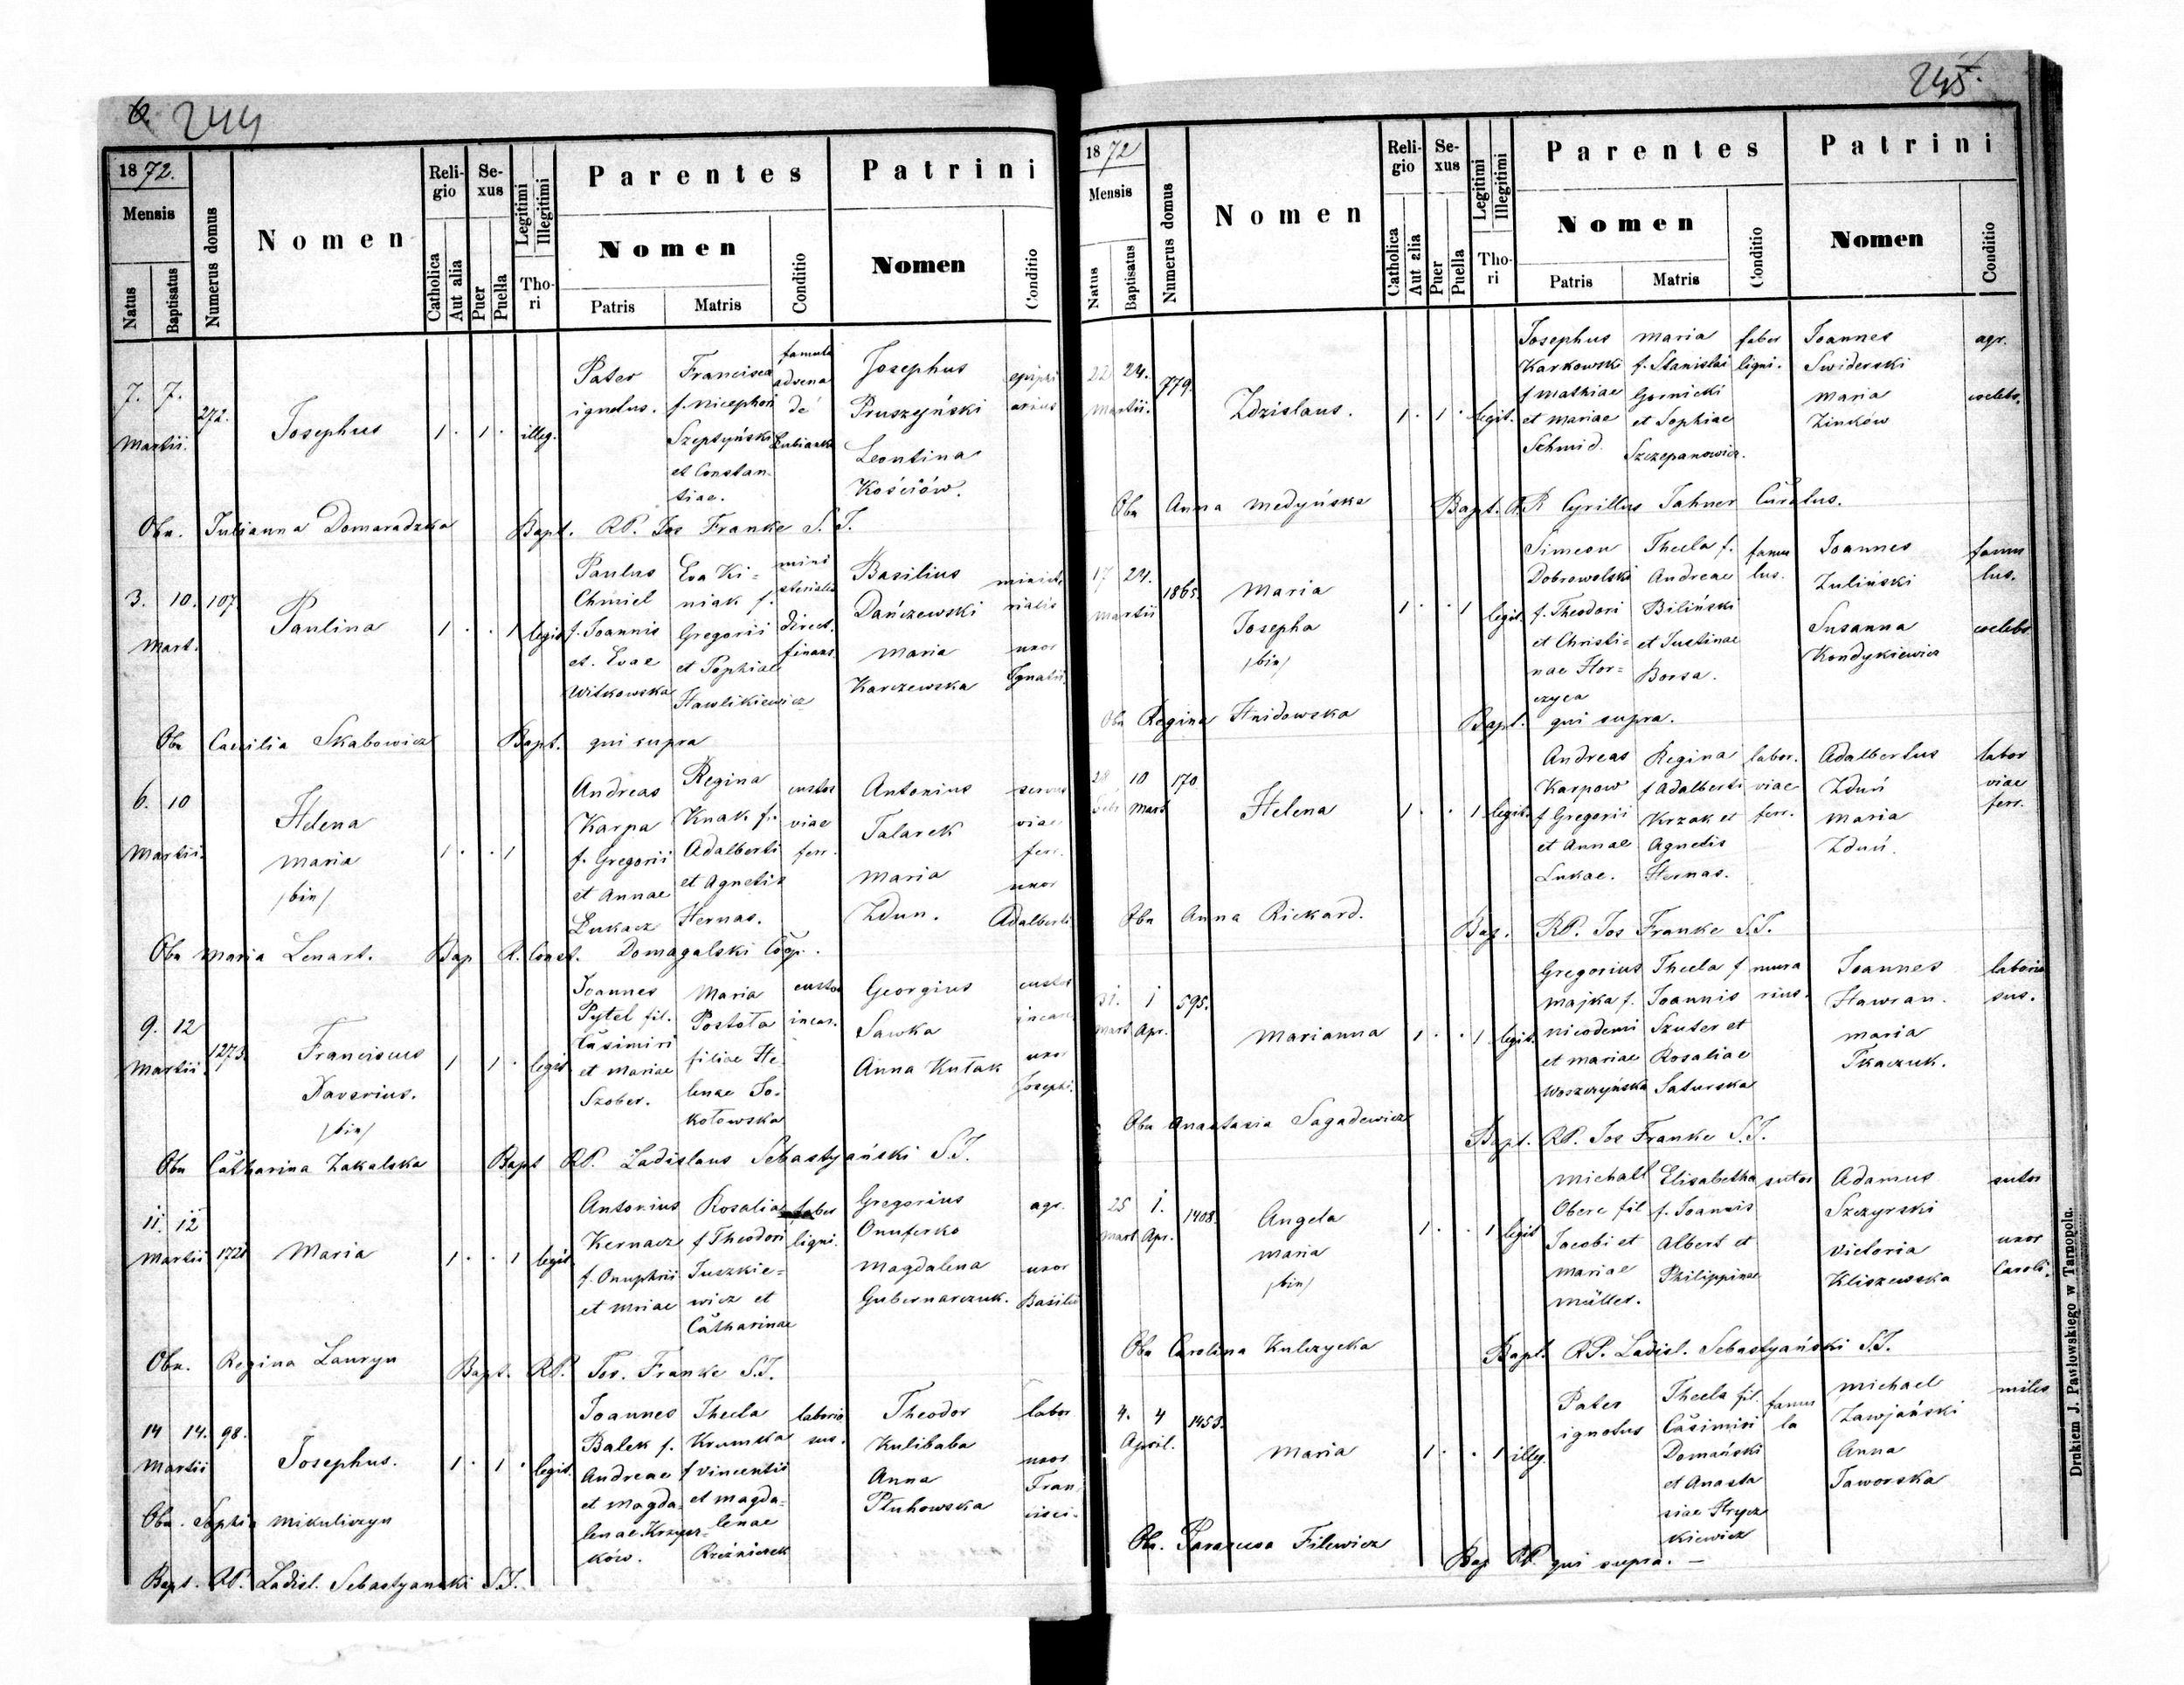 244
1872.
Mensis
Natus
Baptisatus
Numerus domus
Nomen
Religio
Catholica
Aut alia
Sexus
Puer
Puella
Legitimi
Illegitimi
Thori
Parentes
Nomen
Patris
Matris
Conditio
Patrini
Nomen
Conditio
7. 7.
Martii.
272.
Josephus
1 . 1 . illeg.
Pater
ignotus.
Francisca
f. Nicephori
Szeptyński
et Constan-
tiae.
famula
advena
de
Łubianka
Josephus
Pruszyński
Leontina
Kościów.
Obs. Julianna Domaradzka Bapt. RP. Jos Franke S. J.
3. 10. 107.
Mart.
Paulina
1 . . 1 legit
Paulus
Chmiel
f. Joannis
et. Evae
Witkowska
Eva Ki=
niak f.
Gregorii
et Sophiae
Hawlikiewicz
mini
sterialis
direct.
finans.
Basilius
Dańczewski
Maria
Karczewska
ministe
rialis
uxor
Ignatii.
Obs Caecilia Skabowicz Bapt. qui supra
6. 10
Martii.
Helena
Maria
/bin/
1 . . 1
Andreas
Karpa
f. Gregorii
et Annae
Łukacz
Regina
Knak f.
Adalberti
et Agnetis
Hernas.
custos
viae
ferr.
Antonius
Talarek
Maria
Zdun.
servus
viae
ferr.
uxor
Adalberti
Obs Maria Lenart. Bap R. Const. Domagalski Coop.
9. 12
Martii.
1273.
Franciscus
Xaverius.
/bin/
1 1 . legit
Joannes
Pytel fil.
Casimiri
et Mariae
Szober.
Maria
Postoła
filiae He-
lenae So-
kołowska
custos
incar.
Georgius
Sawka
Anna Kułak
custos
incar.
uxor
Josephi.
Obs Catharina Zakalska Bapt RP. Ladislaus Sebastyański S.J.
11. 12
Martii 1721
Maria
1 . . 1 legit.
Antonius
Kernacz
f. Onuphrii
et Mriae
Rosalia
f Theodori
Juszkie=
wicz et
Catharinae
faber
ligni.
Gregorius
Onuferko
Magdalena
Gubernarczuk.
agr.
uxor
Basilii
Obs. Regina Lauryn Bapt. RP. Jos. Franke S.J.
14 14. 98.
Martii
Josephus.
1 . 1 . legit.
Joannes
Balek f.
Andreae
et Magda-
lenae Krzysz-
ków.
Thecla
Krumka
f Vincentii
et Magda=
lenae
Rzeźniczek
laborio
sus.
Theodor
Kulibaba
Anna
Płuhowska
labor
uxor
Fran
cisci.
Obs. Sophia Mikuliczyn
Bapt. RP. Ladisl. Sebastyanski S.J.
245.
1872
Mensis
Natus
Baptisatus
Numerus domus
Nomen
Religio
Catholica
Aut alia
Sexus
Puer
Puella
Legitimi
Illegitimi
Thori
Parentes
Nomen
Patris
Matris
Conditio
Patrini
Nomen
Conditio
22. 24.
Martii.
779.
Zdzislaus.
1 . 1 . legit.
Josephus
Karkowski
f Mathiae
et Mariae
Schmid.
Maria
f. Stanislai
Gornicki
et Sophiae
Szczepanowicz.
faber
ligni.
Joannes
Swiderski
Maria
Zinków
agr.
coelebs.
Obs Anna Medyńska Bapt. RR Cyrillus Jahner Curatus.
17 24.
Martii
1865.
Maria
Josepha
/bin/
1 . . 1 legit.
Simeon
Dobrowolski
f. Theodori
et Christi=
nae Hor=
czyca
Thecla f.
Andreae
Biliński
et Justinae
Borsa.
famu
lus.
Joannes
Zuliński
Susanna
Kondykiewicz
famu
lus.
coelebs
Obs Regina Hnidowska Bapt. qui supra.
28 10 170
Febr Mart
Helena
1 . . 1 legit.
Andreas
Karpow
f Gregorii
et Annae
Lukae.
Regina
f Adalberti
Krzak et
Agnetis
Hernas.
labor.
viae
ferr.
Adalbertus
Zduń
Maria
Zduń.
labor
viae
ferr.
Obs Anna Rickard. Bap. RP. Jos Franke S.J.
31. 1 595.
Mart Apr.
Marianna
1 . . 1 legit.
Gregorius
Majka f.
Nicodemi
et Mariae
Woszczyńska
Thecla f
Joannis
Szuter et
Rosaliae
Saturska
mura
rius.
Joannes
Hawran.
Maria
Tkaczuk.
laborio
sus.
Obs Anastasia Sagadewicz Bapt. RP. Jos Franke S.J.
25 1. 1408.
Mart Apr.
Angela
Maria
/bin/
1 . . 1 legit
Michaël
Obere fil
Jacobi et
Mariae
Müller.
Elisabetha
f. Joannis
Albert et
Philippinae
sutor
Adamus
Szczyrski
Victoria
Kliszewska
sutor
uxor
Caroli.
Obs Carolina Kulczycka Bapt. RP. Ladisl. Sebastyański S.J.
4. 4 1453.
April.
Maria
1 . . 1 illeg.
Pater
ignotus
Thecla fil.
Casimiri
Domański
et Anasta
siae Hrycz
kiewicz
famu
la
Michael
Zawjański
Anna
Jaworska
miles
Obs. Parascusa Filewicz Bap RP qui supra. —
Drukiem J. Pawłowskiego w Tarnopolu.